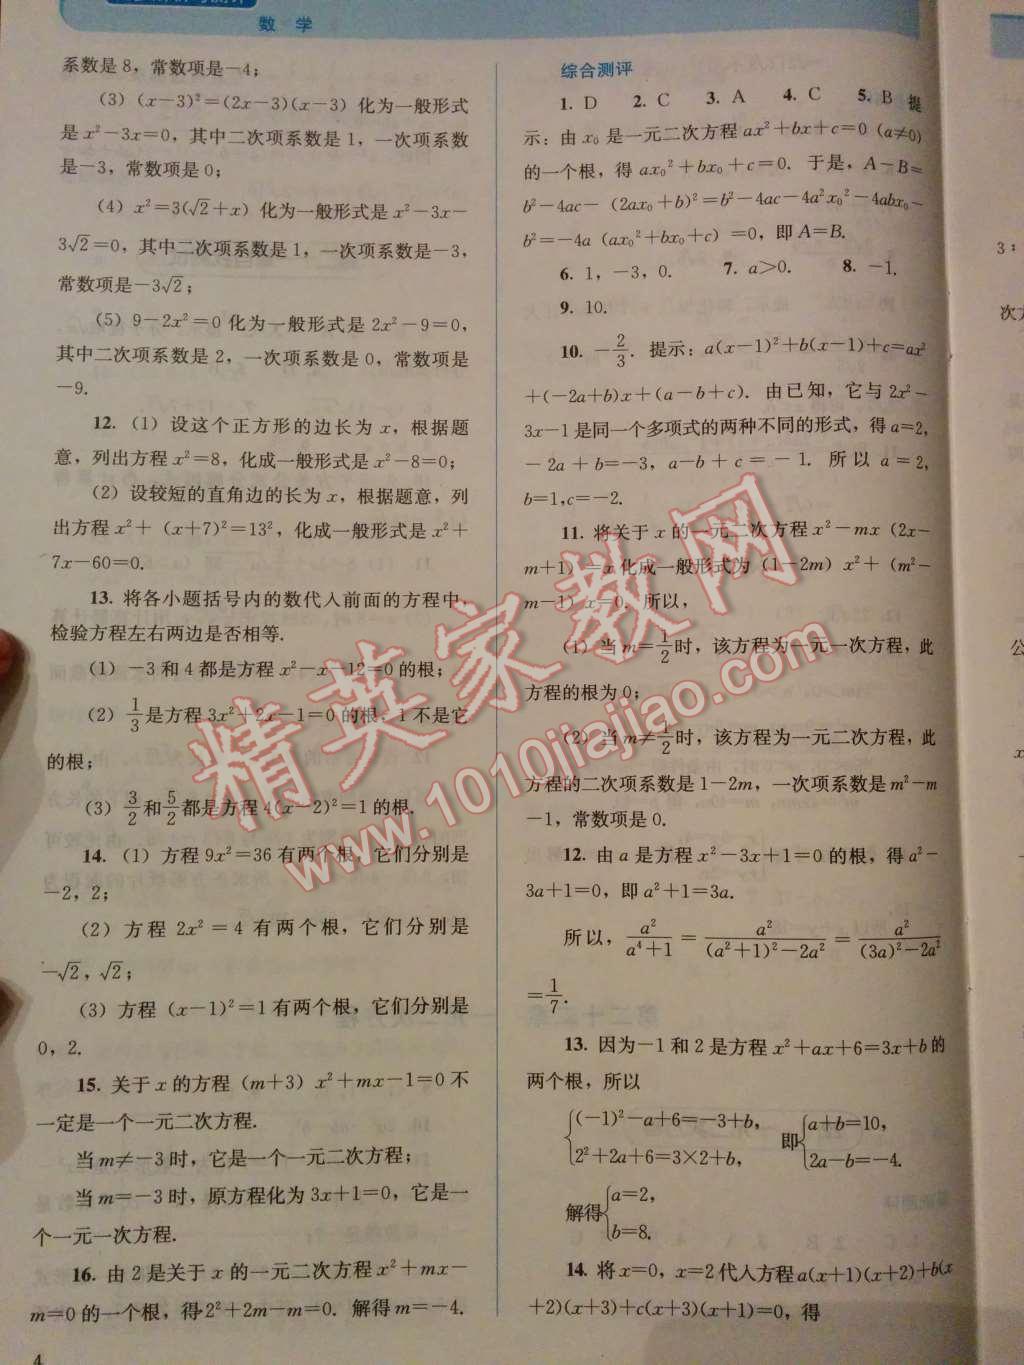 数 学
系数是8，常数项是－4；
(3)(x－3)²＝(2x－3)(x－3) 化为一般形式
是 x²－3x＝0，其中二次项系数是 1，一次项系数是
－3，常数项是 0；
(4) x²＝3(√2＋x) 化为一般形式是 x²－3x－
3√2＝0，其中二次项系数是 1，一次项系数是－3，
常数项是－3√2；
(5) 9－2x²＝0 化为一般形式是 2x²－9＝0，
其中二次项系数是 2，一次项系数是 0，常数项是
－9.
12. (1) 设这个正方形的边长为 x，根据题
意，列出方程 x²＝8，化成一般形式是 x²－8＝0；
(2) 设较短的直角边的长为 x，根据题意，列
出方程 x²＋(x＋7)²＝13²，化成一般形式是 x²＋
7x－60＝0.
13. 将各小题括号内的数代入前面的方程中，
检验方程左右两边是否相等.
(1) －3 和 4 都是方程 x²－x－12＝0 的根；
(2) 1/3 是方程 3x²＋2x－1＝0 的根，1 不是它
的根；
(3) 3/2 和 5/2 都是方程 4(x－2)²＝1 的根.
14. (1) 方程 9x²＝36 有两个根，它们分别是
－2，2；
(2) 方程 2x²＝4 有两个根，它们分别是
－√2，√2；
(3) 方程 (x－1)²＝1 有两个根，它们分别是
0，2.
15. 关于 x 的方程 (m＋3) x²＋mx－1＝0 不
一定是一个一元二次方程.
当 m≠－3 时，它是一个一元二次方程；
当 m＝－3 时，原方程化为 3x＋1＝0，它是一
个一元一次方程.
16. 由 2 是关于 x 的一元二次方程 x²＋mx－
m＝0 的一个根，得 2²＋2m－m＝0. 解得 m＝－4.
4
综合测评
1. D 2. C 3. A 4. C 5. B 提
示：由 x₀ 是一元二次方程 ax²＋bx＋c＝0 (a≠0)
的一个根，得 ax₀²＋bx₀＋c＝0. 于是，A－B＝
b²－4ac－(2ax₀＋b)²＝b²－4ac－4a²x₀²－4abx₀－
b²＝－4a(ax₀²＋bx₀＋c)＝0，即 A＝B.
6. 1，－3，0. 7. a＞0. 8. －1.
9. 10.
10. －2/3. 提示：a(x－1)²＋b(x－1)＋c＝ax²
＋(－2a＋b)x＋(a－b＋c). 由已知，它与 2x²－
3x－1 是同一个多项式的两种不同的形式，得 a＝2，
－2a＋b＝－3，a－b＋c＝－1. 所以 a＝2，
b＝1，c＝－2.
11. 将关于 x 的一元二次方程 x²－mx (2x－
m＋1)＝x 化成一般形式为 (1－2m) x²＋(m²－
m－1) x＝0. 所以，
(1) 当 m＝1/2 时，该方程为一元一次方程，此
方程的根为 0；
(2) 当 m≠1/2 时，该方程为一元二次方程，此
方程的二次项系数是 1－2m，一次项系数是 m²－m
－1，常数项是 0.
12. 由 a 是方程 x²－3x＋1＝0 的根，得 a²－
3a＋1＝0，即 a²＋1＝3a.
所以，a²/(a⁴＋1)＝a²/((a²＋1)²－2a²)＝a²/((3a)²－2a²)
＝1/7.
13. 因为－1 和 2 是方程 x²＋ax＋6＝3x＋b 的
两个根，所以
{(－1)²－a＋6＝－3＋b， 即 {a＋b＝10，
2²＋2a＋6＝3×2＋b， 2a－b＝－4.
解得 {a＝2，
b＝8.
14. 将 x＝0，x＝2 代入方程 a(x＋1)(x＋2)＋b(x
＋2)(x＋3)＋c(x＋3)(x＋1)＝0，得
3：
次方
公
x
精英家教网
www.1010jiajiao.com